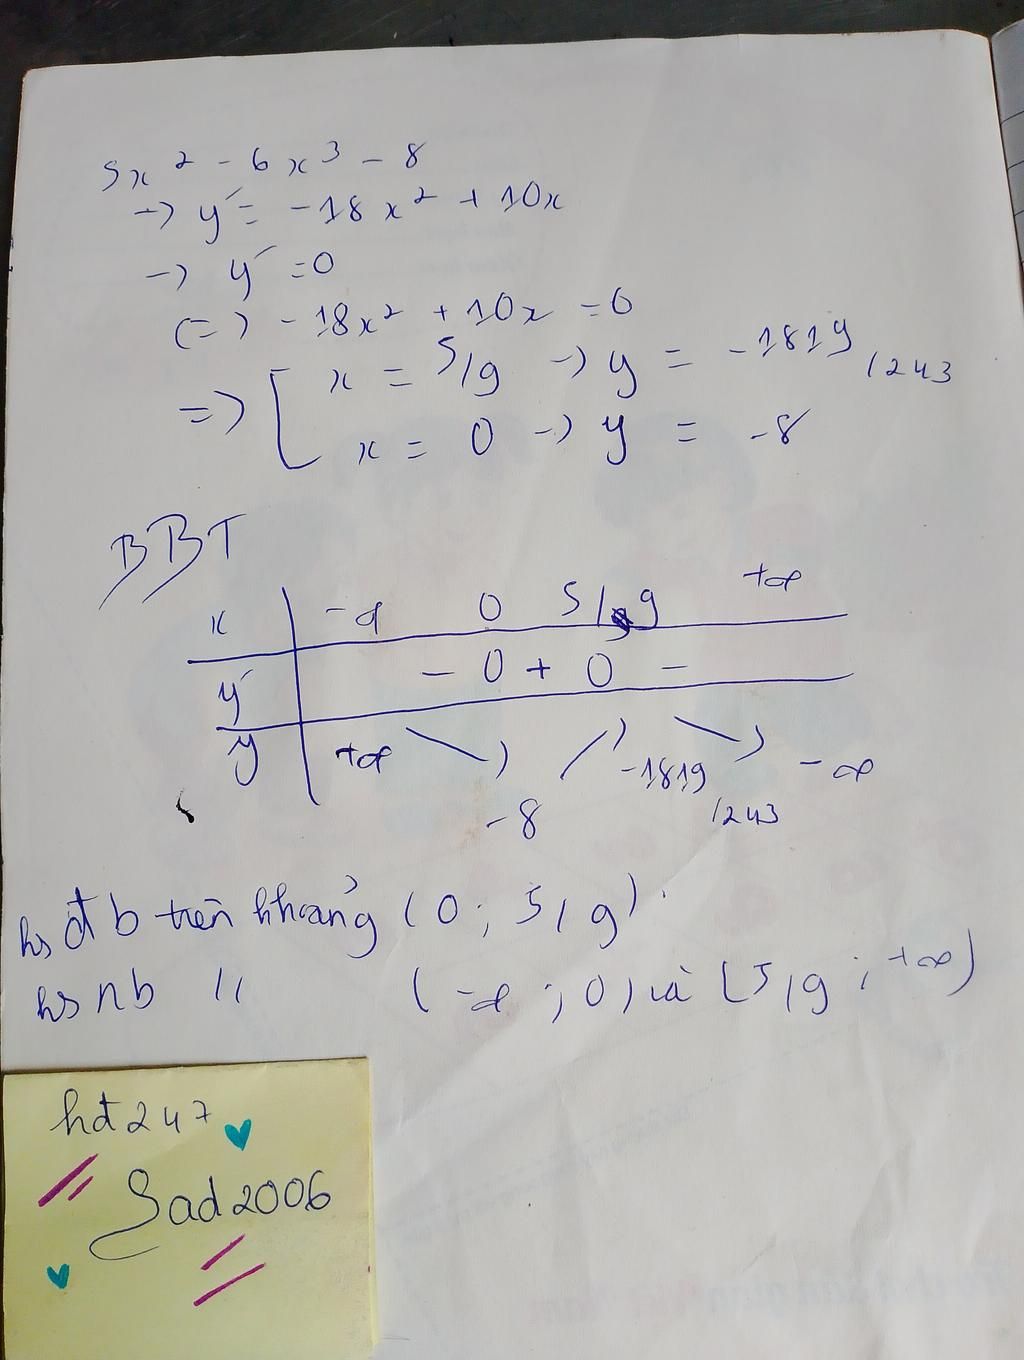 5x² - 6x³ - 8
-> y' = -18x² + 10x
-> y' = 0
(=) -18x² + 10x = 0
=> [ x = 5/9 -> y = -1819/243
x = 0 -> y = -8
BBT
x -∞ 0 5/9 +∞
y' - 0 + 0 -
y +∞ ↘ -8 ↗ -1819/243 ↘ -∞
hs đb trên khoảng (0; 5/9).
hs nb // (-∞; 0) và (5/9; +∞)
hđ247
Sad2006